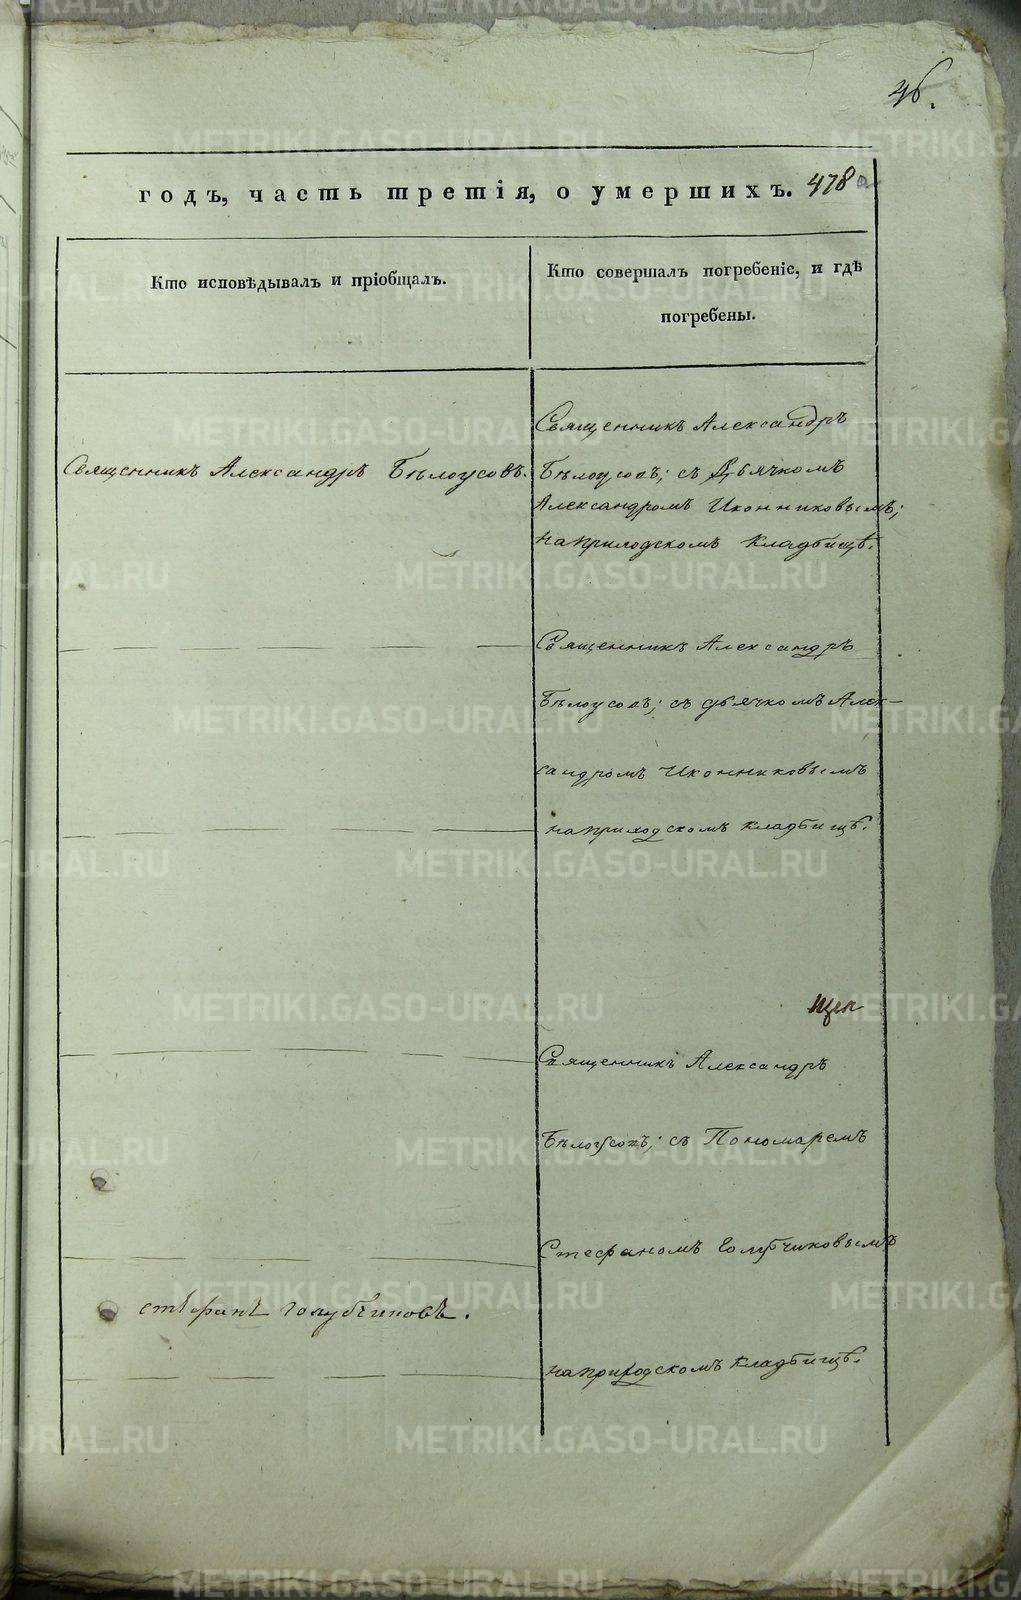 46.
годъ, часть третія, о умершихъ. 478
Кто исповѣдывалъ и пріобщалъ.
Кто совершалъ погребеніе, и гдѣ
погребены.
Священникъ Александръ Бѣлоусовъ.
Священникъ Александръ
Бѣлоусовъ; съ Дьячкомъ
Александромъ Иконниковымъ;
на приходскомъ кладбищѣ.
Священникъ Александръ
Бѣлоусовъ; съ дьячкомъ Алек-
сандромъ Иконниковымъ
на приходскомъ кладбищѣ.
Священникъ Александръ
Бѣлоусовъ; съ Пономаремъ
Стефаномъ Голубчиковымъ
стефанъ голубчиковъ.
на приходскомъ кладбищѣ.
METRIKI.GASO-URAL.RU